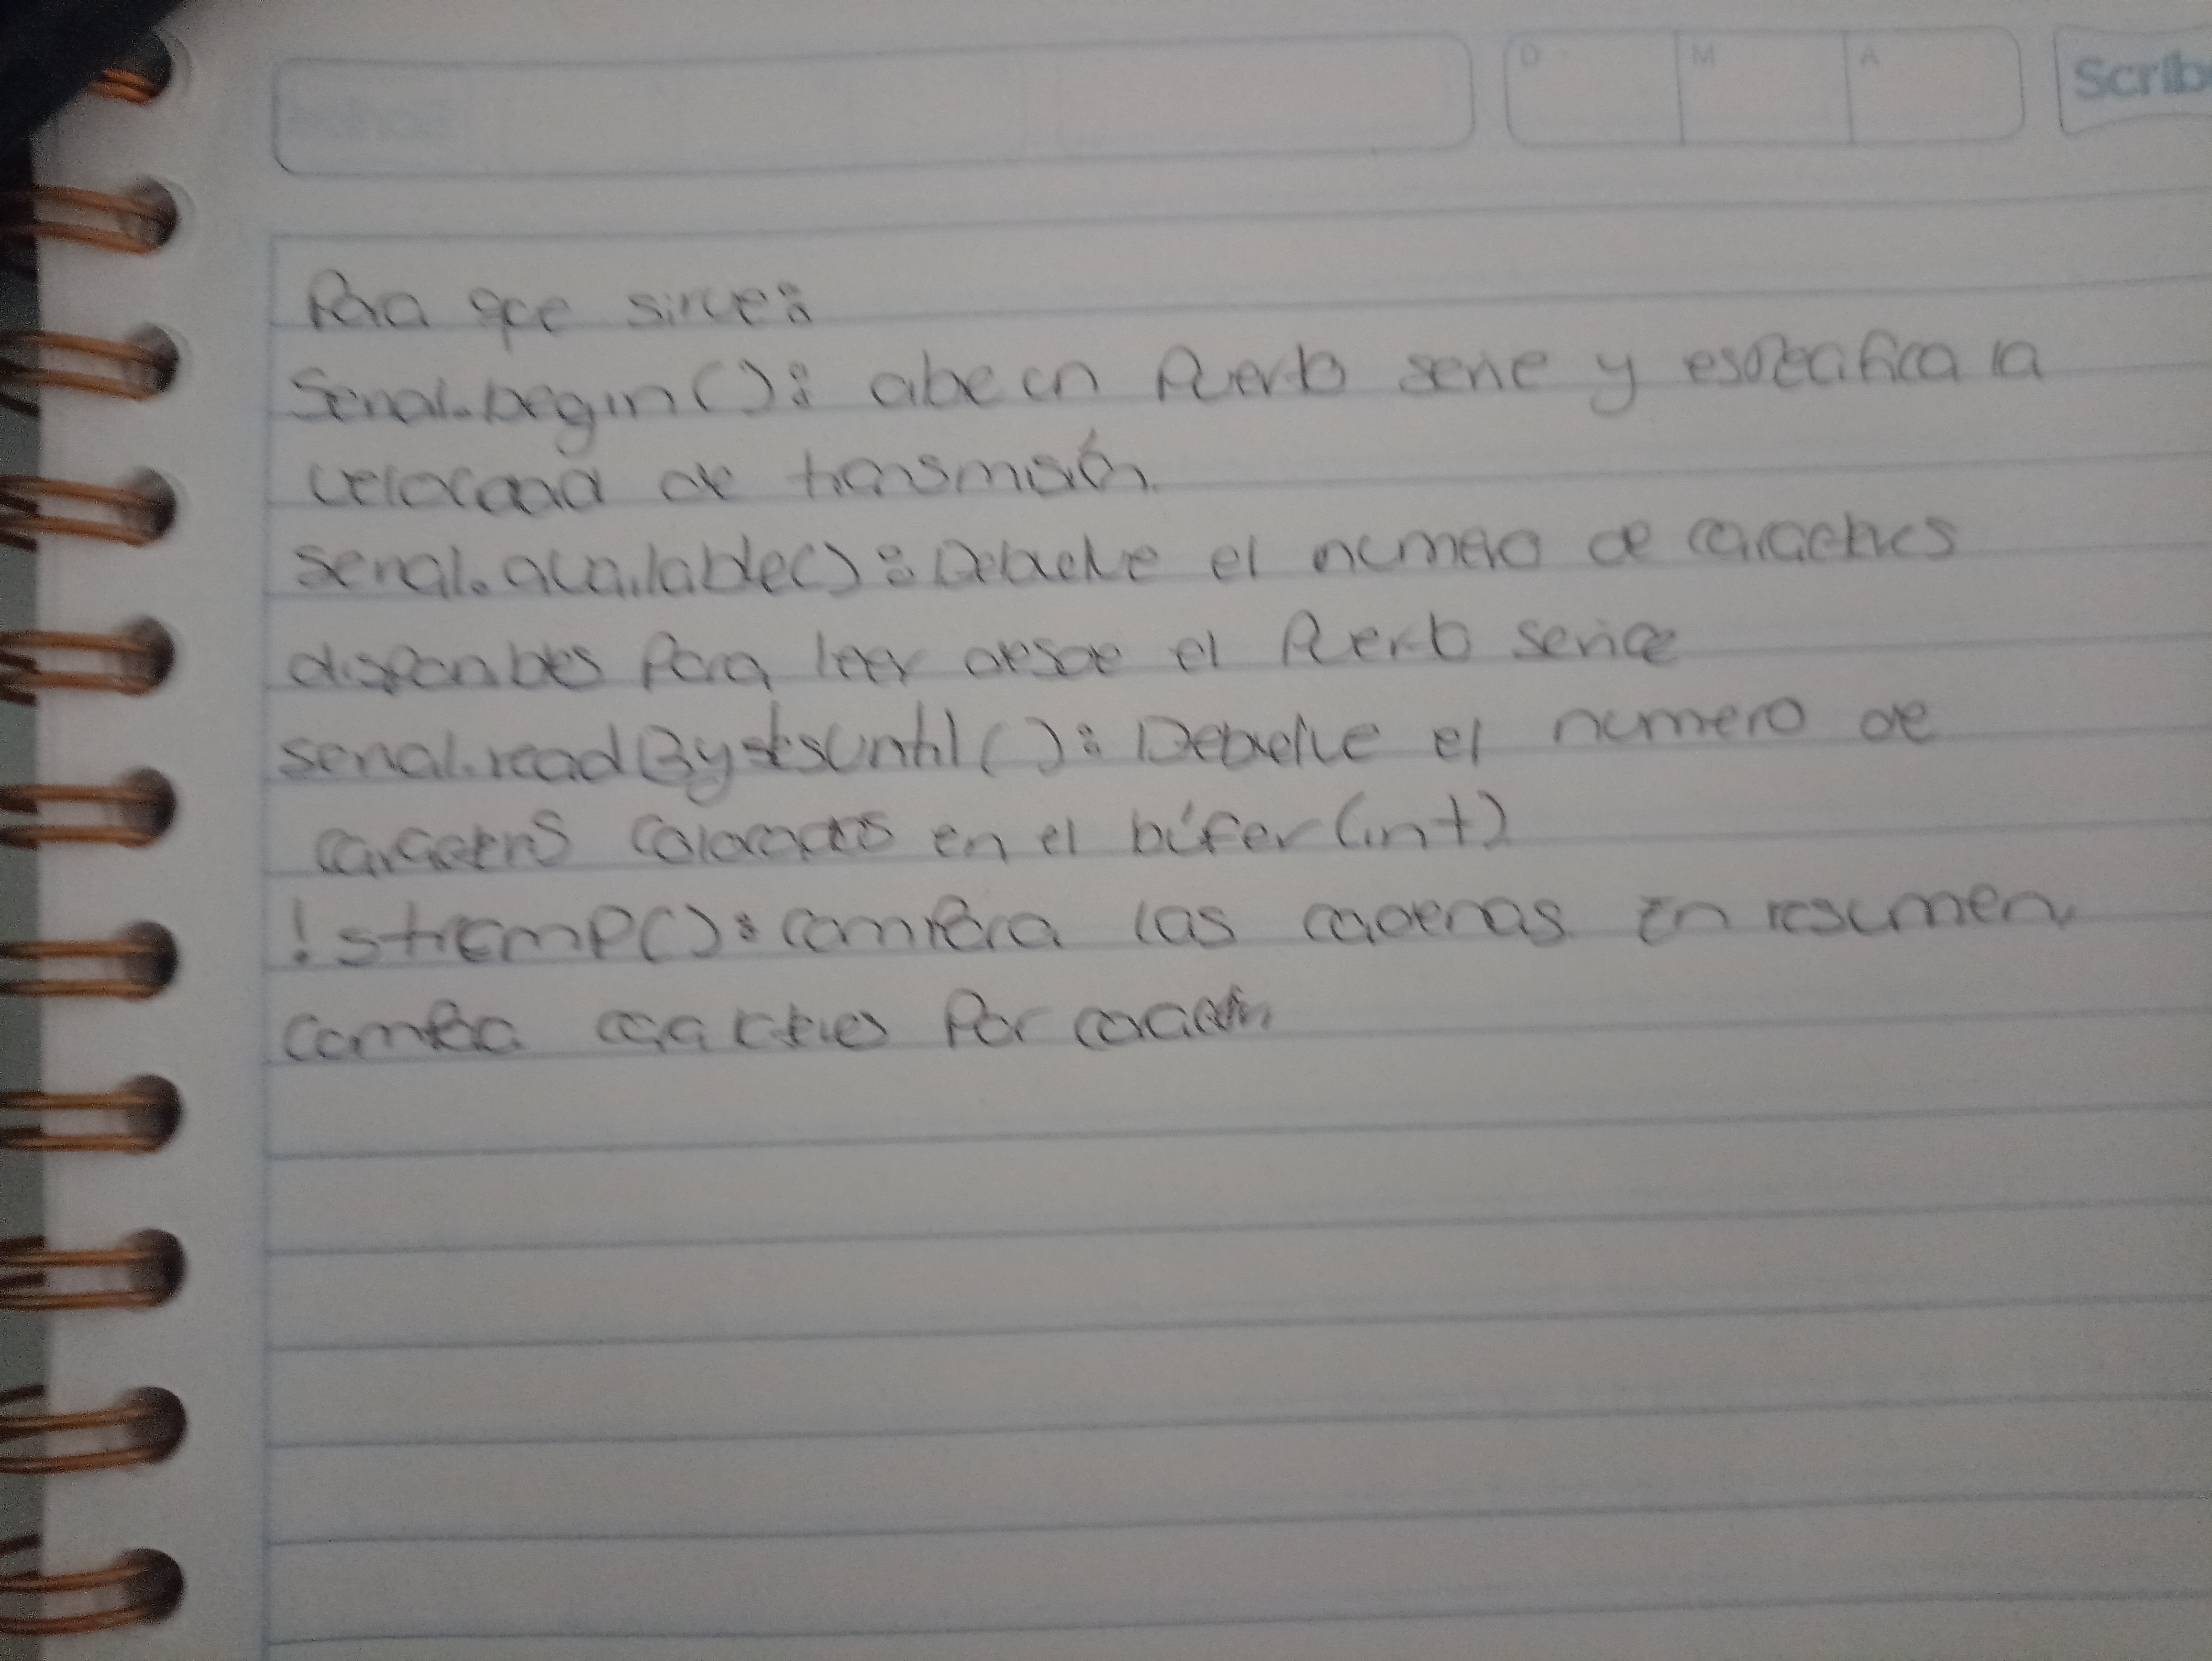 D M A Scrib
Para que sirve:
Serial.begin(): abre un Puerto serie y especifica la
velocidad de transmisión.
Serial.available(): Debuelve el numero de caracteres
disponibles Para leer desde el Puerto serie
serial.readBytesUntil(): Debuelve el numero de
caracteres colocados en el búfer (int)
!strcmp(): compara las cadenas. En resumen,
compara caracteres Por